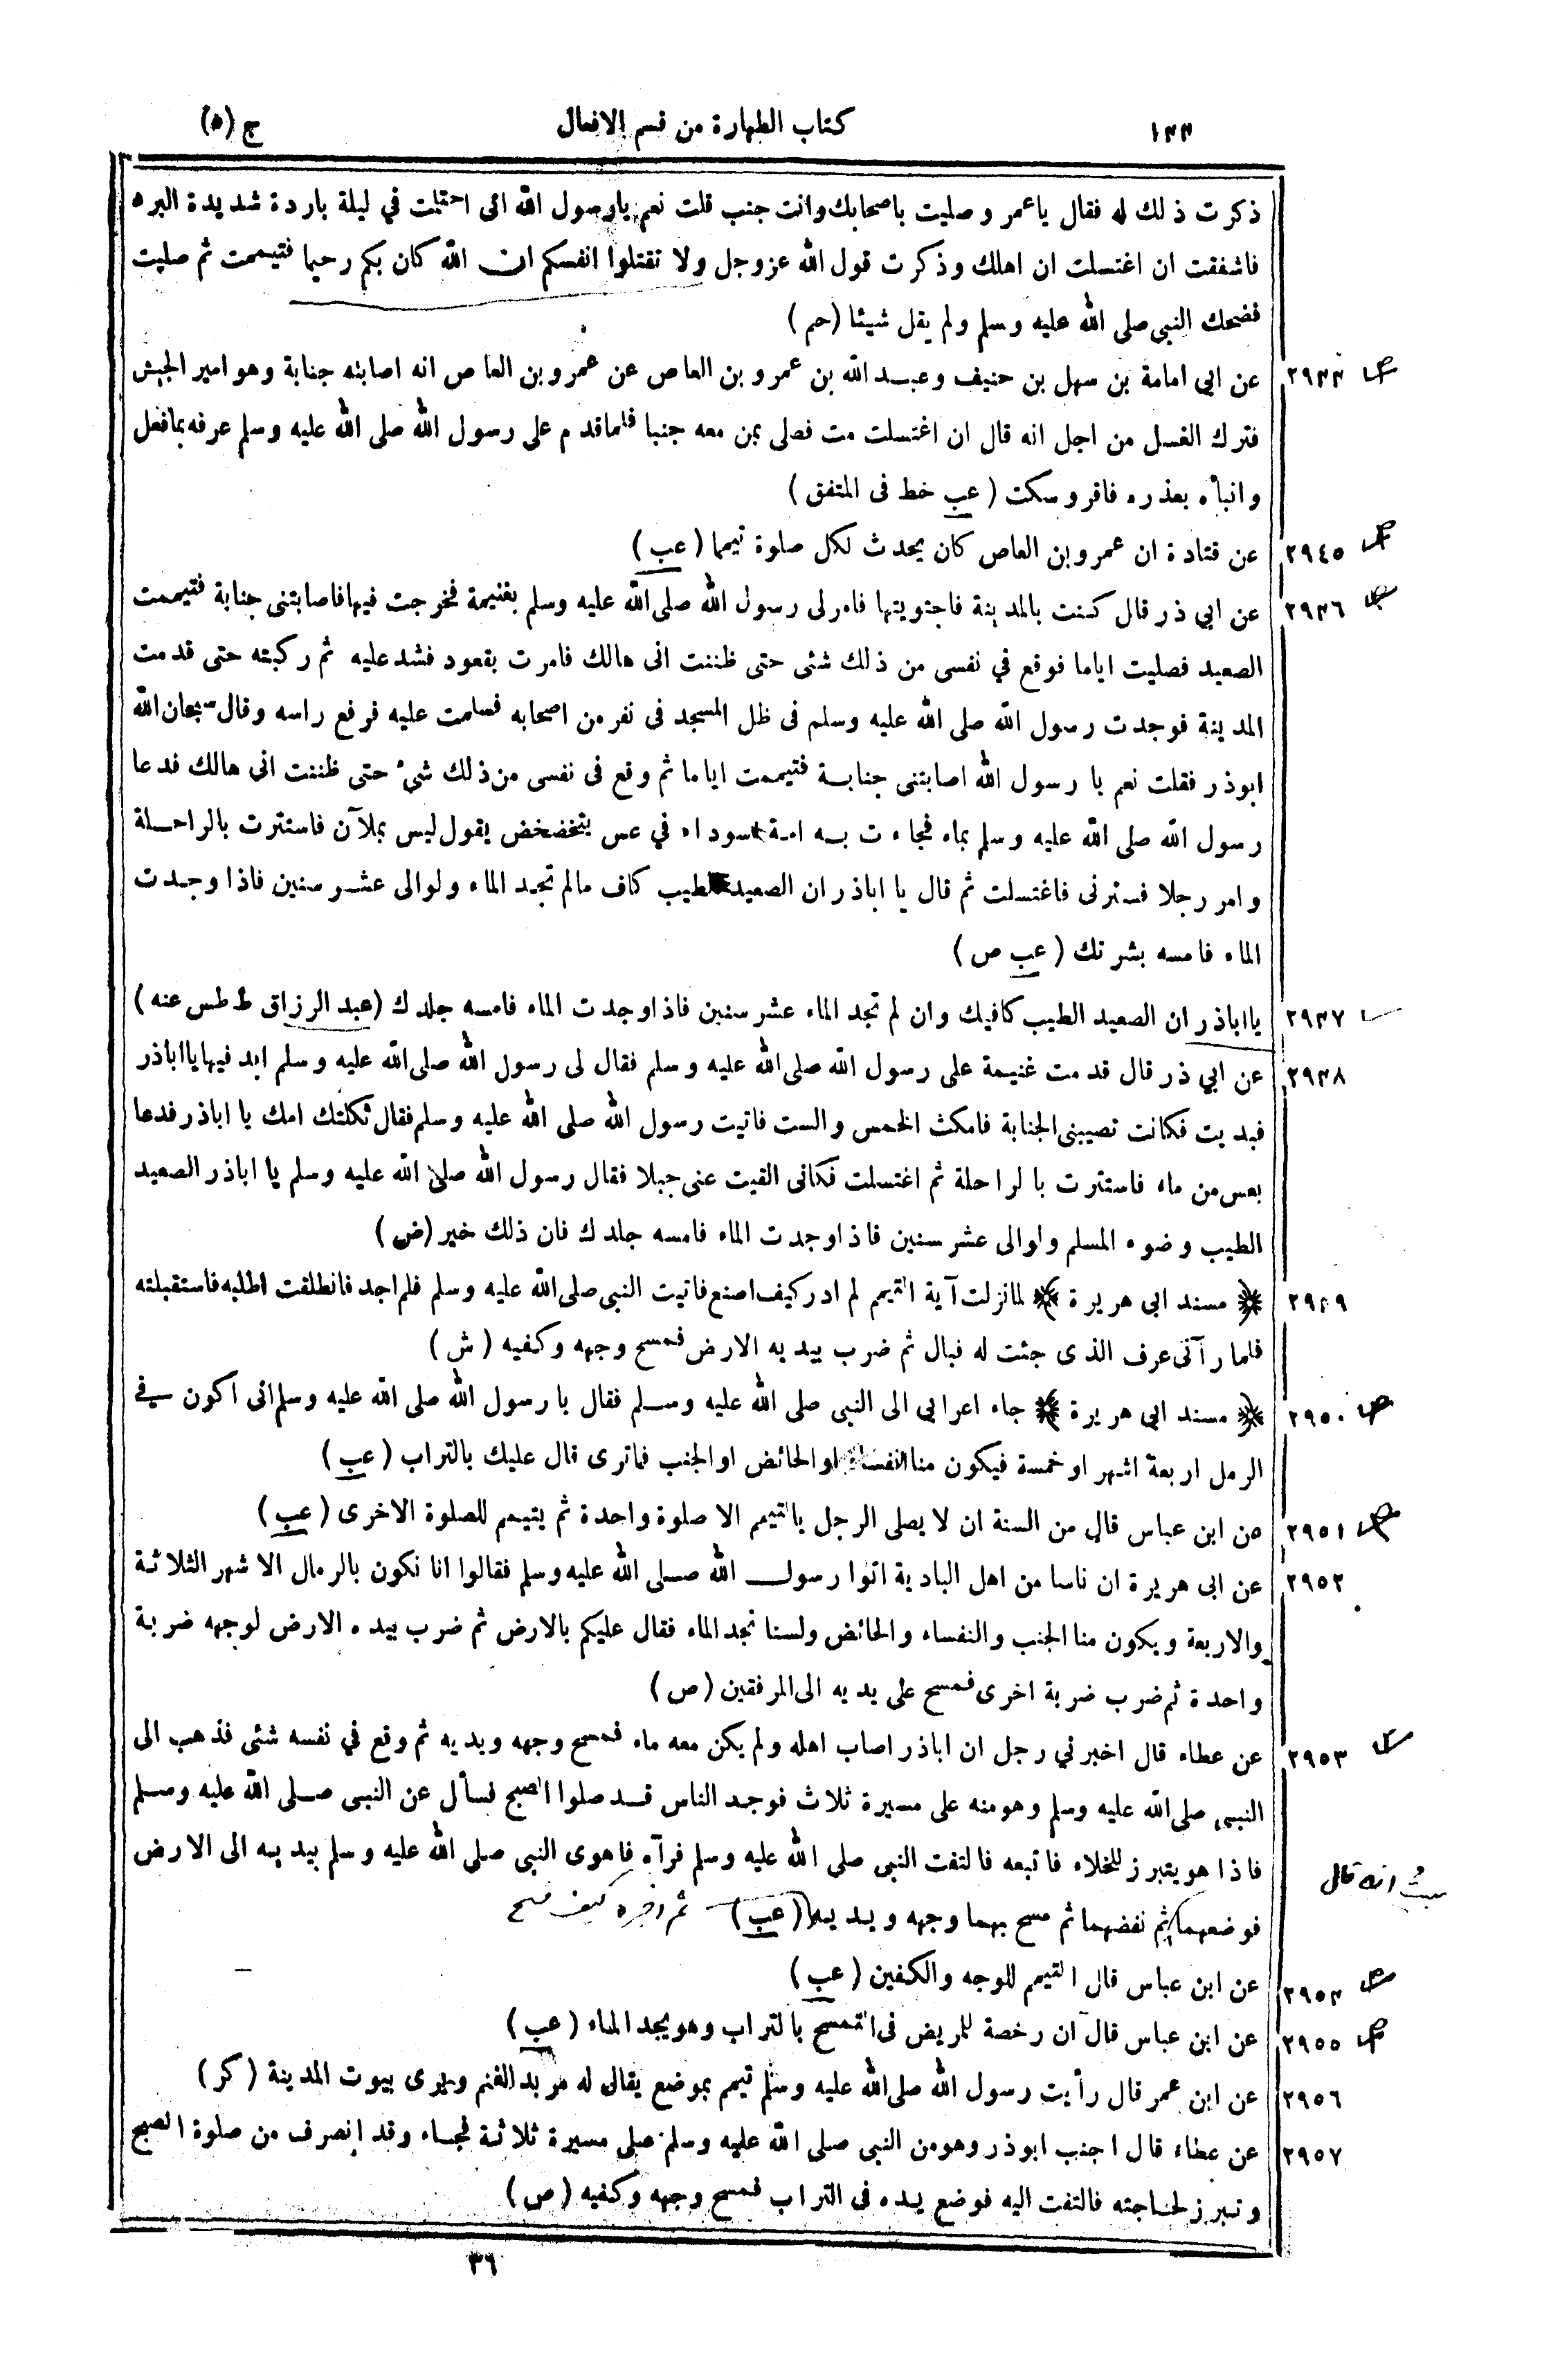 ١٤٤ كتاب الطهارة من قسم الافعال ج (٥)
ذكرت ذلك له فقال ياعمرو صليت باصحابك وانت جنب قلت نعم يارسول الله انى احتلمت في ليلة باردة شديدة البرد
فاشفقت ان اغتسلت ان اهلك وذكرت قول الله عزوجل ولا تقتلوا انفسكم ان الله كان بكم رحيما فتيممت ثم صليت
فضحك النبى صلى الله عليه وسلم ولم يقل شيئا (حم)
٢٩٤٤ عن ابي امامة بن سهل بن حنيف وعبد الله بن عمرو بن العاص عن عمرو بن العاص انه اصابته جنابة وهو امير الجيش
فترك الغسل من اجل انه قال ان اغتسلت مت فصلى بمن معه جنبا فلما قدم على رسول الله صلى الله عليه وسلم عرفه بما فعل
وانبأه بعذره فاقر وسكت (عب خط فى المتفق)
٢٩٤٥ عن قتادة ان عمرو بن العاص كان يحدث لكل صلوة تيمما (عب)
٢٩٤٦ عن ابي ذر قال كنت بالمدينة فاجتويتها فامر لى رسول الله صلى الله عليه وسلم بغنيمة فخرجت فيها فاصابتنى جنابة فتيممت
الصعيد فصليت اياما فوقع في نفسى من ذلك شئى حتى ظننت انى هالك فامرت بقعود فشد عليه ثم ركبته حتى قدمت
المدينة فوجدت رسول الله صلى الله عليه وسلم فى ظل المسجد فى نفر من اصحابه فسلمت عليه فرفع راسه وقال سبحان الله
ابوذر فقلت نعم يا رسول الله اصابتنى جنابة فتيممت اياما ثم وقع فى نفسى من ذلك شئ حتى ظننت انى هالك فدعا
رسول الله صلى الله عليه وسلم بماء فجاءت به امة سوداء في عس يتخضخض يقول ليس بملآن فاستترت بالراحلة
وامر رجلا فسترنى فاغتسلت ثم قال يا اباذر ان الصعيد الطيب كاف مالم تجد الماء ولوالى عشر سنين فاذا وجدت
الماء فامسه بشرتك (عب ص)
٢٩٤٧ يااباذر ان الصعيد الطيب كافيك وان لم تجد الماء عشر سنين فاذا وجدت الماء فامسه جلدك (عبد الرزاق ط طس عنه)
٢٩٤٨ عن ابي ذر قال قدمت غنيمة على رسول الله صلى الله عليه وسلم فقال لى رسول الله صلى الله عليه وسلم ابد فيها يااباذر
فبديت فكانت تصيبنى الجنابة فامكث الخمس والست فاتيت رسول الله صلى الله عليه وسلم فقال ثكلتك امك يا اباذر فدعا
بعس من ماء فاستترت بالراحلة ثم اغتسلت فكانى القيت عنى جبلا فقال رسول الله صلى الله عليه وسلم يا اباذر الصعيد
الطيب وضوء المسلم ولوالى عشر سنين فاذا وجدت الماء فامسه جلدك فان ذلك خير (ض)
٢٩٤٩ ﴿ مسند ابى هريرة ﴾ لما نزلت آية التيمم لم ادر كيف اصنع فاتيت النبى صلى الله عليه وسلم فلم اجد فانطلقت اطلبه فاستقبلته
فلما رآنى عرف الذى جئت له فبال ثم ضرب بيديه الارض فمسح وجهه وكفيه (ش)
٢٩٥٠ ﴿ مسند ابى هريرة ﴾ جاء اعرابي الى النبى صلى الله عليه وسلم فقال يا رسول الله صلى الله عليه وسلم انى اكون في
الرمل اربعة اشهر اوخمسة فيكون منا النفساء او الحائض او الجنب فماترى قال عليك بالتراب (عب)
٢٩٥١ عن ابن عباس قال من السنة ان لا يصلى الرجل بالتيمم الا صلوة واحدة ثم يتيمم للصلوة الاخرى (عب)
٢٩٥٢ عن ابى هريرة ان ناسا من اهل البادية اتوا رسول الله صلى الله عليه وسلم فقالوا انا نكون بالرمال الاشهر الثلاثة
والاربعة ويكون منا الجنب والنفساء والحائض ولسنا نجد الماء فقال عليكم بالارض ثم ضرب بيده الارض لوجهه ضربة
واحدة ثم ضرب ضربة اخرى فمسح على يديه الى المرفقين (ص)
٢٩٥٣ عن عطاء قال اخبرني رجل ان اباذر اصاب اهله ولم يكن معه ماء فمسح وجهه ويديه ثم وقع في نفسه شئى فذهب الى
النبى صلى الله عليه وسلم وهو منه على مسيرة ثلاث فوجد الناس قد صلوا الصبح فسأل عن النبى صلى الله عليه وسلم
فاذا هو يتبرز للخلاء فاتبعه فالتفت النبى صلى الله عليه وسلم فرآه فاهوى النبى صلى الله عليه وسلم بيديه الى الارض
انه قال
فوضعهما ثم نفضهما ثم مسح بهما وجهه ويديه (عب) ثم اخبره كيف مسح
٢٩٥٤ عن ابن عباس قال التيمم للوجه والكفين (عب)
٢٩٥٥ عن ابن عباس قال ان رخصة للمريض فى التمسح بالتراب وهو يجد الماء (عب)
٢٩٥٦ عن ابن عمر قال رأيت رسول الله صلى الله عليه وسلم تيمم بموضع يقال له مربد الغنم ويرى بيوت المدينة (كر)
٢٩٥٧ عن عطاء قال اجنب ابوذر وهو من النبى صلى الله عليه وسلم على مسيرة ثلاثة فجاء وقد انصرف من صلوة الصبح
وتبرز لحاجته فالتفت اليه فوضع يده فى التراب فمسح وجهه وكفيه (ص)
٣٦